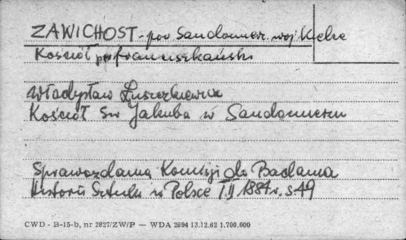 ZAWICHOST - pow Sandomierz. woj Kielce
Kościół pofranciszkański
Władysław Łuszczkiewicz
Kościół Św Jakuba w Sandomierzu
Sprawozdania Komisji do Badania
Historii Sztuki w Polsce T.II 1881 r. s 49
CWD - B-15-b, nr 2827/ZW/P — WDA 2894 13.12.62 1.700.000